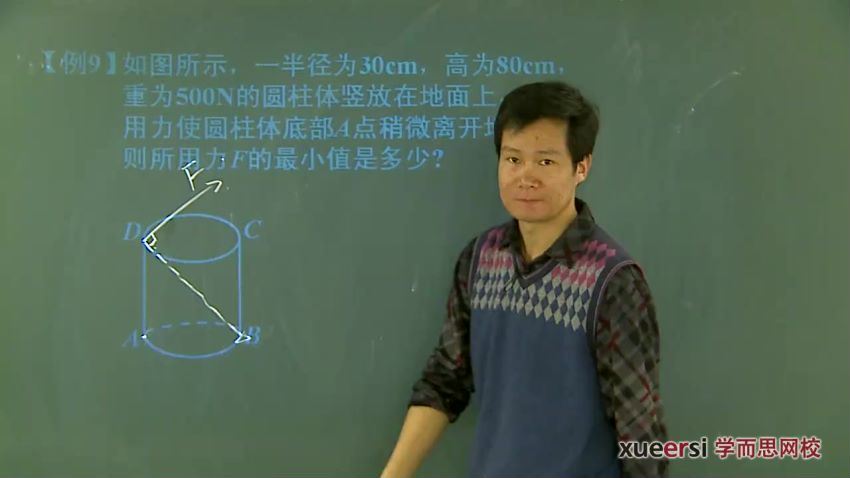 【例9】如图所示，一半径为30cm，高为80cm，
重为500N的圆柱体竖放在地面上
用力使圆柱体底部A点稍微离开
则所用力F的最小值是多少？
F
D
C
A
B
xueersi 学而思网校